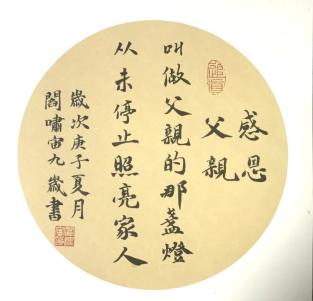 感恩
父親
叫做父親的那盞燈
从未停止照亮家人
歲次庚子夏月
閻嘯宙九歲書